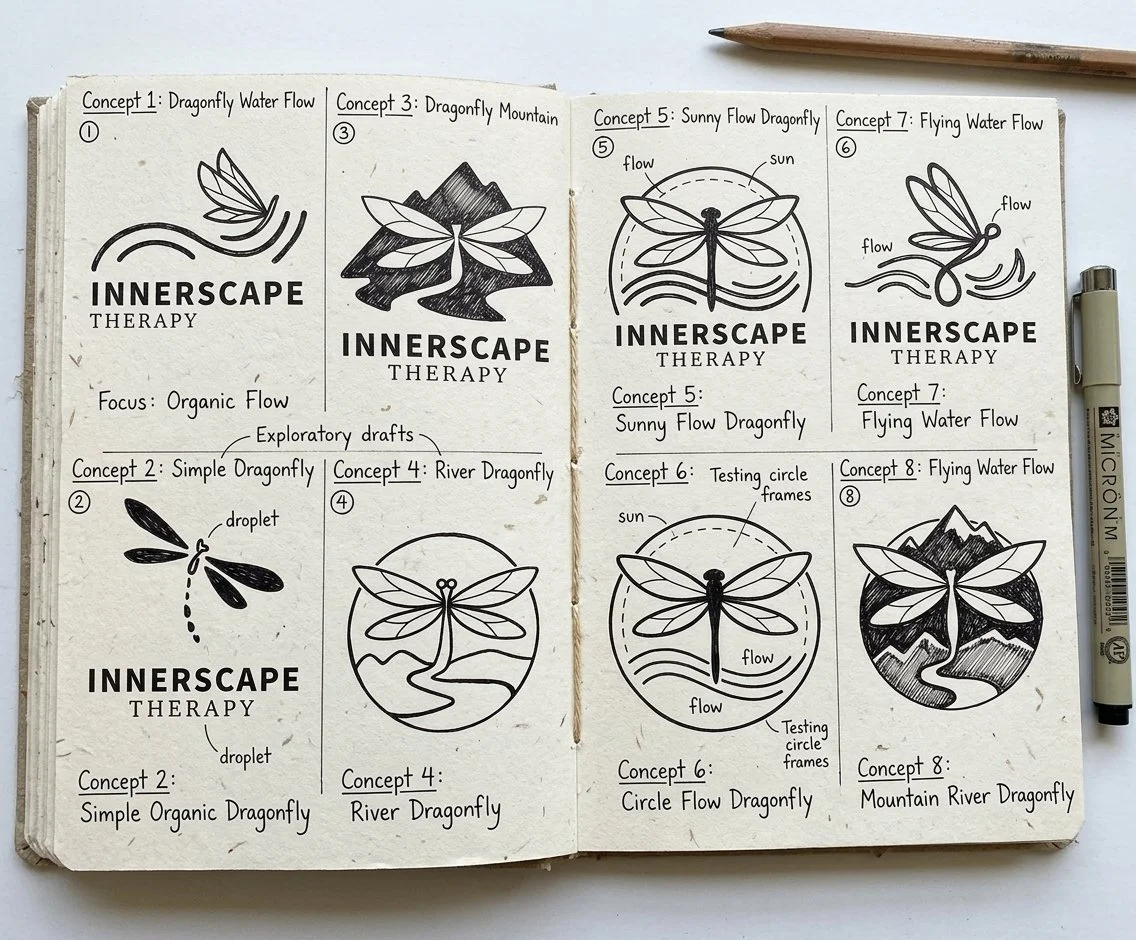 Concept 1: Dragonfly Water Flow
1
INNERSCAPE
THERAPY
Focus: Organic Flow
Concept 3: Dragonfly Mountain
3
INNERSCAPE
THERAPY
Exploratory drafts
Concept 2: Simple Dragonfly
2
droplet
INNERSCAPE
THERAPY
droplet
Concept 2:
Simple Organic Dragonfly
Concept 4: River Dragonfly
4
Concept 4:
River Dragonfly
Concept 5: Sunny Flow Dragonfly
5
flow
sun
INNERSCAPE
THERAPY
Concept 5:
Sunny Flow Dragonfly
Concept 7: Flying Water Flow
6
flow
flow
INNERSCAPE
THERAPY
Concept 7:
Flying Water Flow
Concept 6:
Testing circle
frames
sun
flow
flow
Testing
circle
frames
Concept 6:
Circle Flow Dragonfly
Concept 8: Flying Water Flow
8
Concept 8:
Mountain River Dragonfly
MICRÓN'M
AP